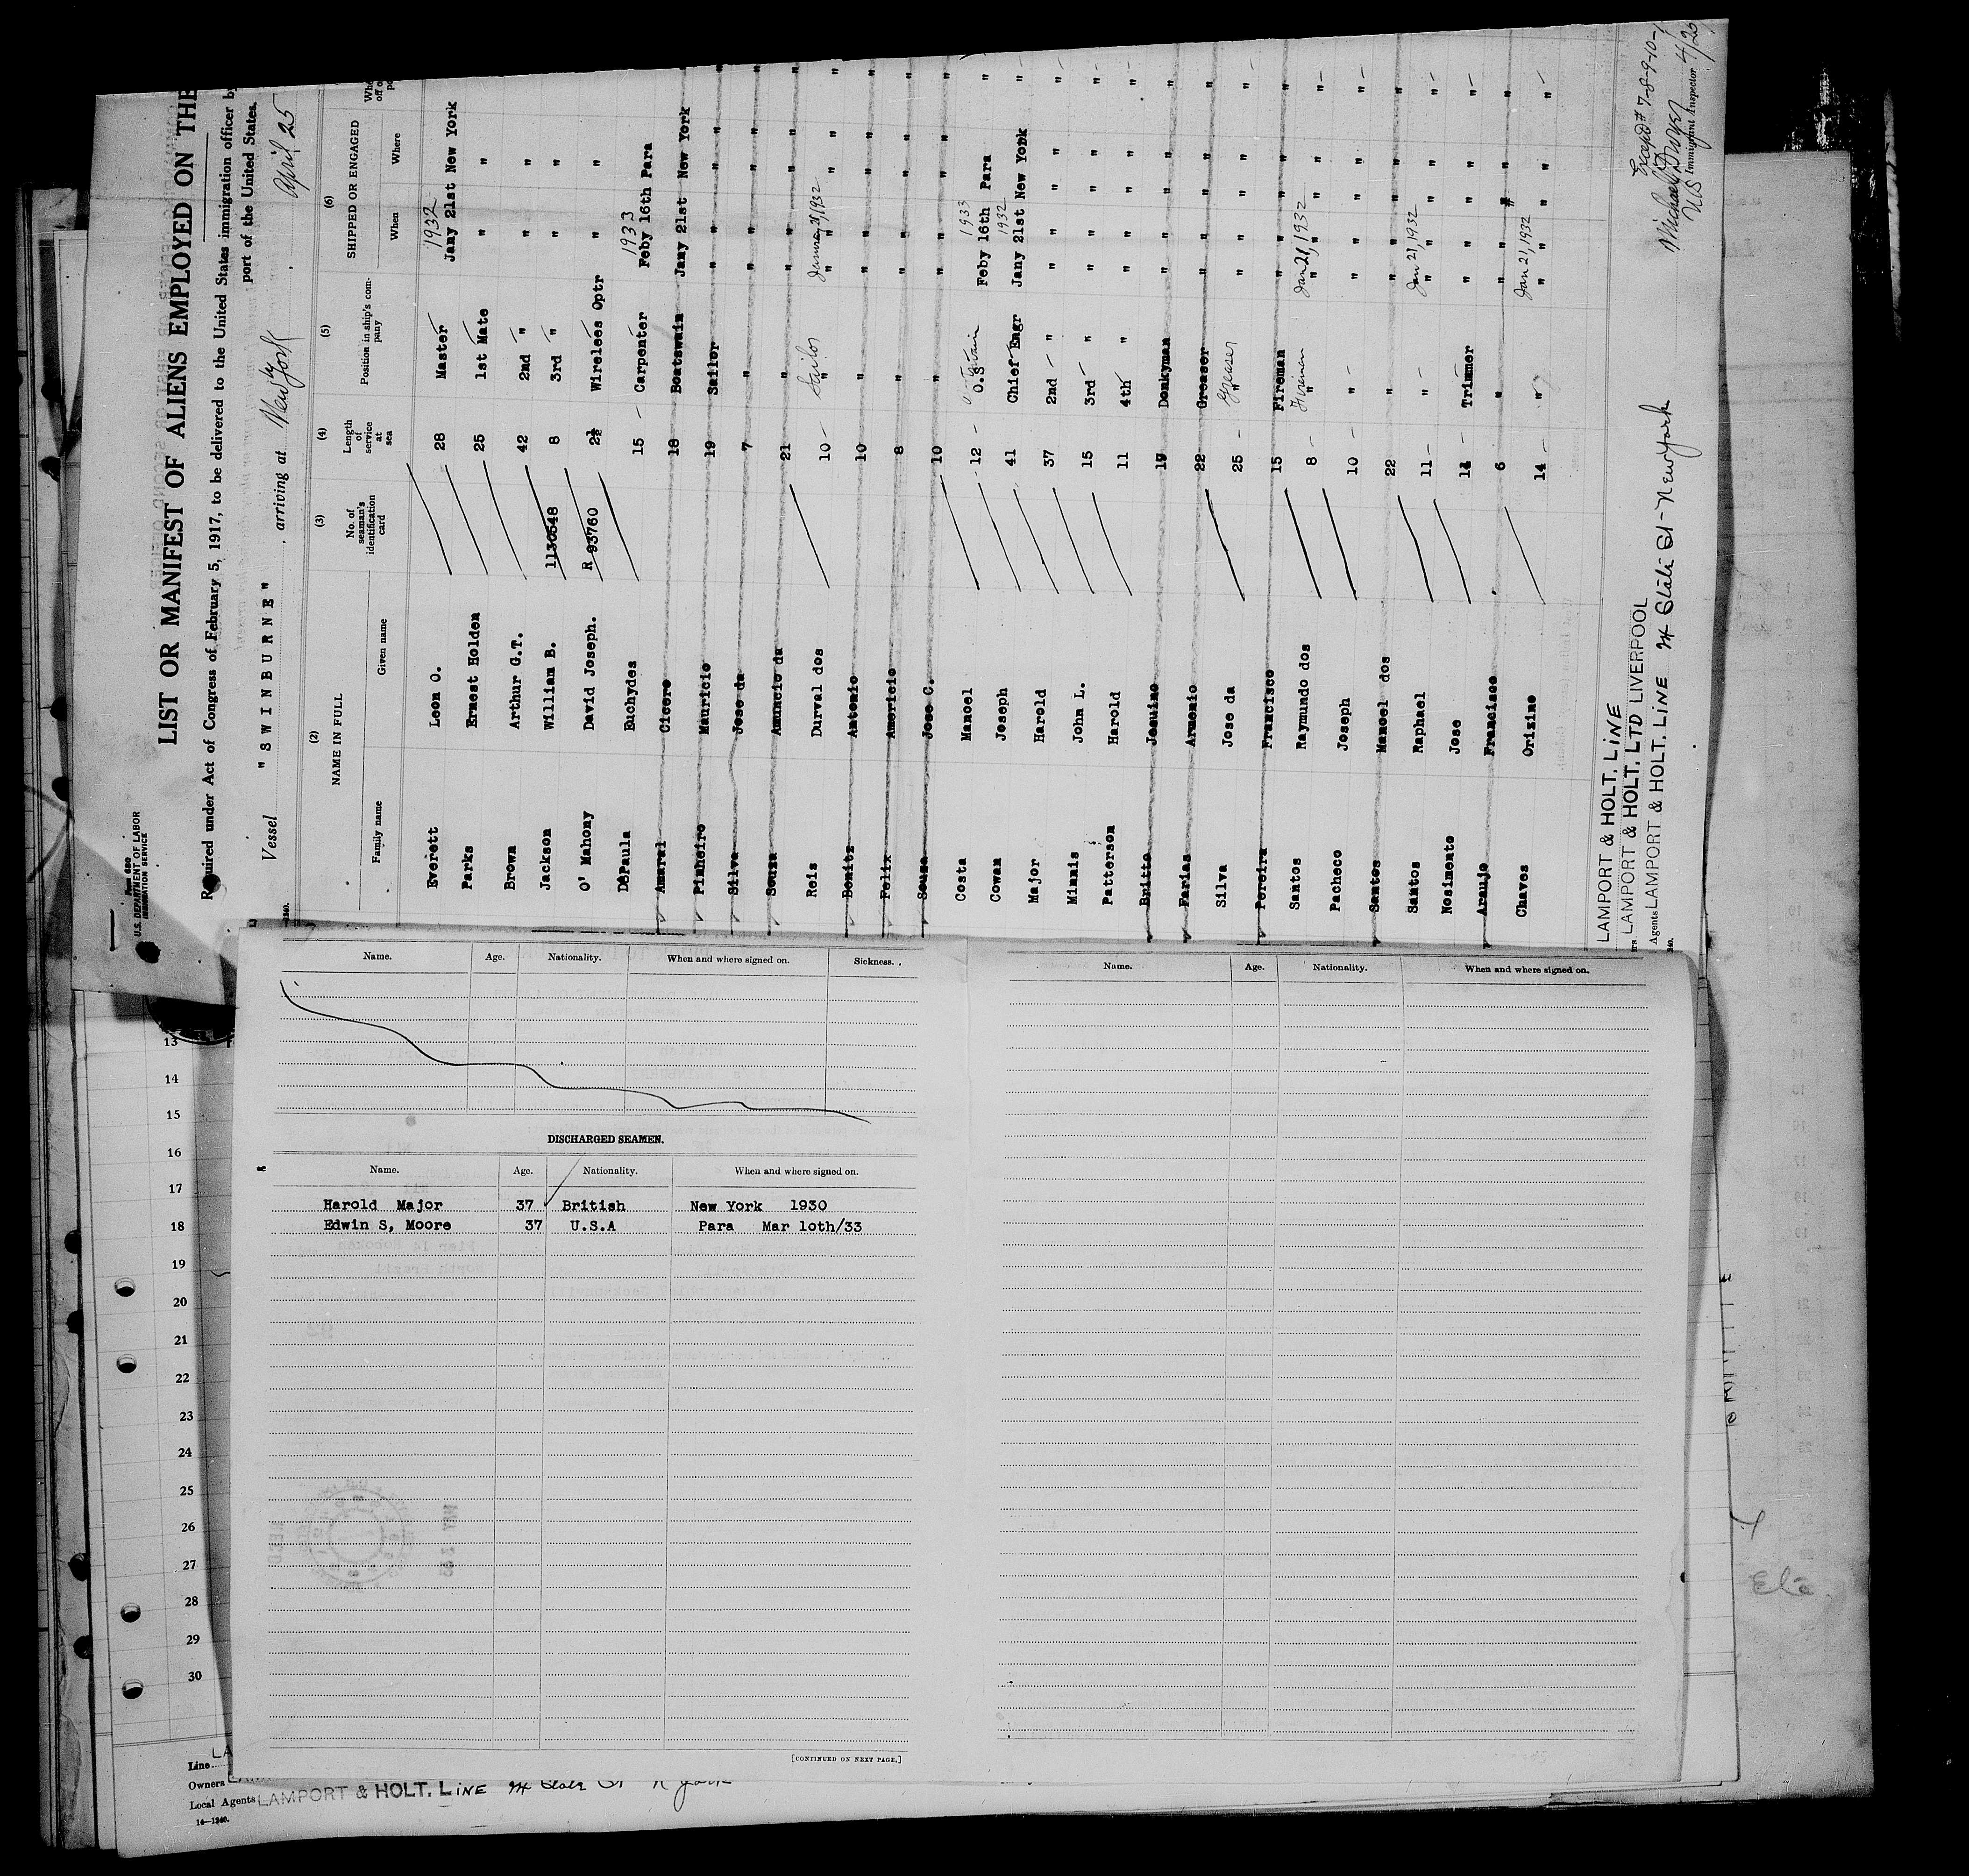 Form 680
U.S. DEPARTMENT OF LABOR
IMMIGRATION SERVICE
LIST OR MANIFEST OF ALIENS EMPLOYED ON THE
Required under Act of Congress of February 5, 1917, to be delivered to the United States immigration officer by
port of the United States.
Vessel "SWINBURNE" , arriving at New York , April 25
(2) (3) (4) (5) (6)
NAME IN FULL No. of seaman's identification card Length of service at sea Position in ship's company SHIPPED OR ENGAGED
Family name Given name When Where
1932
Everett Leon O. 28 Master Jany 21st New York "
Parks Ernest Holden 25 1st Mate " "
Brown Arthur G.T. 42 2nd " " "
Jackson William B. 1130548 8 3rd " " "
O' Mahony David Joseph. R 93760 2½ Wireless Optr " "
1933
DePaula Euchydes 15 Carpenter Feby 16th Para
Amaral Cicero 18 Boatswain Jany 21st New York
Pinheiro Mauricio 19 Sailor " " "
Silva Jose da 7 " " " "
Souza Amuncio da 21 " " " "
Reis Durval dos 10 Sailor " January 21, 1932 " "
Benitz Antonio 10 " " " "
Felix Americio 8 " " " "
Souza Jose C. 10 " " " "
Costa Manoel 12 O.S 1933 Feby 16th Para "
Cowan Joseph 41 Chief Engr 1932 Jany 21st New York "
Major Harold 37 2nd " " " "
Minnis John L. 15 3rd " " " "
Patterson Harold 11 4th " " " "
Britto Jesuino 19 Donkyman " " "
Farias Armenio 22 Greaser " " "
Silva Jose da 25 " Greaser " " "
Pereira Francisco 15 Fireman " " "
Santos Raymundo dos 8 " Fireman Jan 21, 1932 " " "
Pacheco Joseph 10 " " " "
Santos Manoel dos 22 " " " "
Santos Raphael 11 " Jan 21, 1932 " " "
Nosimento Jose 14 Trimmer " " "
Araujo Francisco 6 " " " "
Chaves Orizino 14 " Jan 21, 1932 " " "
LAMPORT & HOLT. LINE
LAMPORT & HOLT. LTD LIVERPOOL
Agents LAMPORT & HOLT. LINE 24 State St - New York
Except # 7-8-9-10-
Michael Dwyer
US Immigrant Inspector. 4/25
Name. Age. Nationality. When and where signed on. Sickness.
DISCHARGED SEAMEN.
Name. Age. Nationality. When and where signed on.
Harold Major 37 British New York 1930
Edwin S, Moore 37 U.S.A Para Mar 1oth/33
[CONTINUED ON NEXT PAGE.]
Name. Age. Nationality. When and where signed on.
13
14
15
16
17
18
19
20
21
22
23
24
25
26
27
28
29
30
Line LA
Owners
Local Agents LAMPORT & HOLT. LINE 24 State St N York
14—1240.